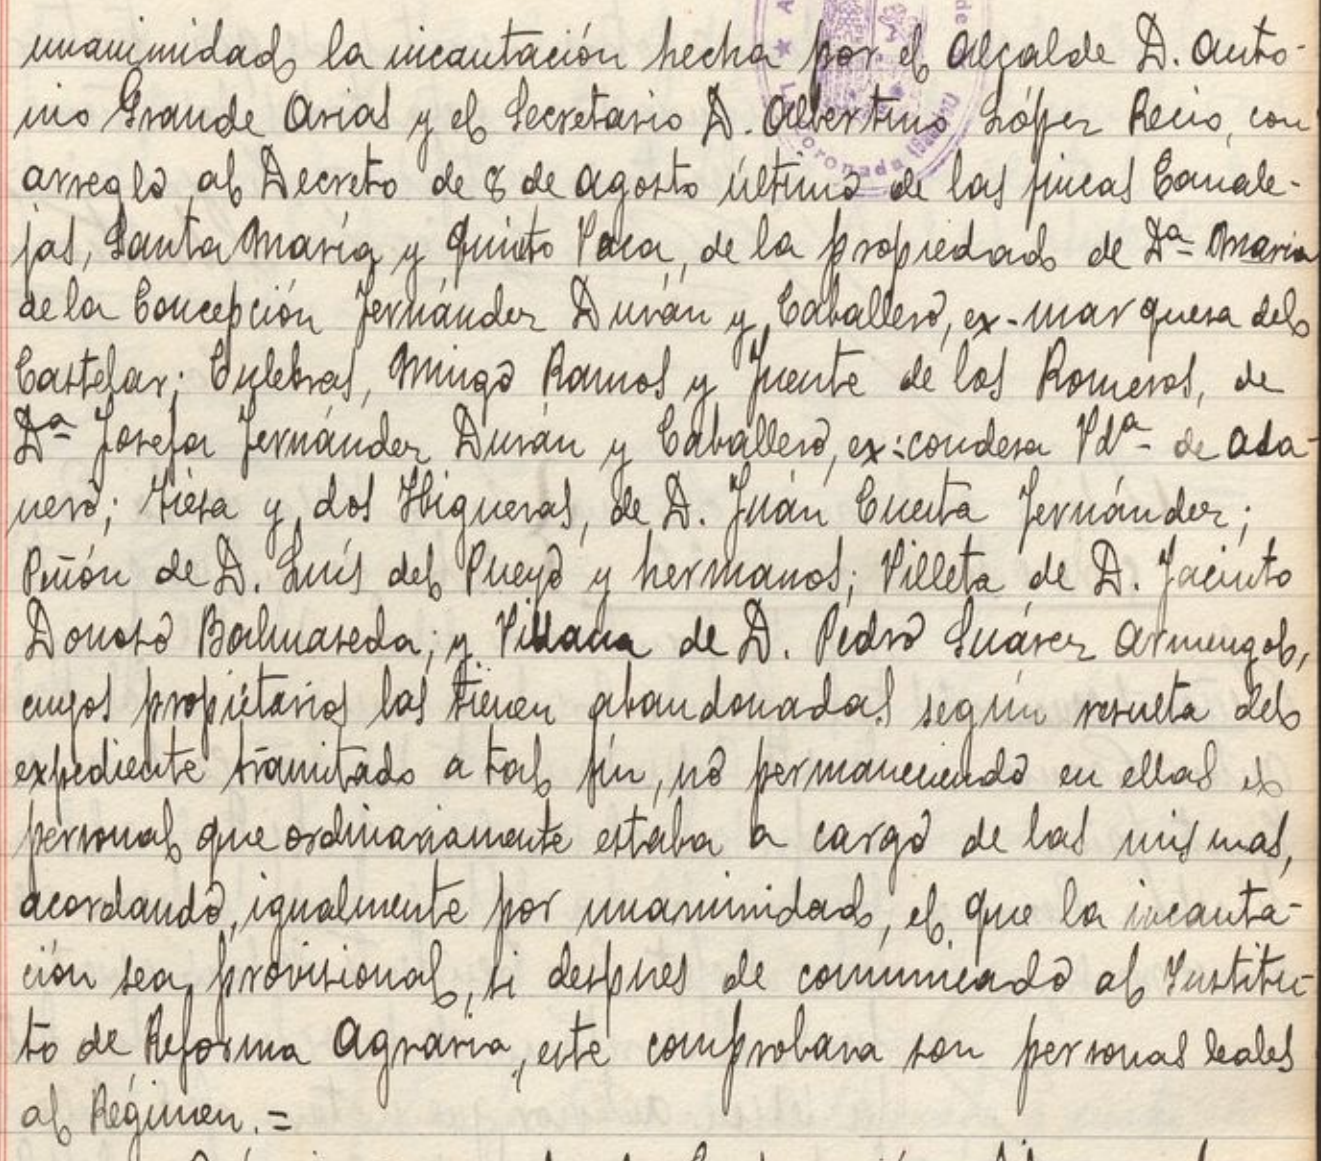 unanimidad la incautación hecha por el Alcalde D. Anto-
nio Grande Arias y el Secretario D. Albertino López Recio, con
arreglo al Decreto de 8 de Agosto último de las fincas Canale-
jas, Santa María y Quinto Vaca, de la propiedad de Dª María
de la Concepción Fernández Durán y Caballero, ex-marquesa del
Castelar; Culebras, Mingo Ramos y Fuente de los Romeros, de
Dª Josefa Fernández Durán y Caballero, ex-condesa Vdª de Ada-
nero; Tiesa y dos Higueras, de D. Juán Cuesta Fernández;
Piñón de D. Luís del Pueyo y hermanos; Villeta de D. Jacinto
Donoso Balmaseda; y Villana de D. Pedro Suárez Armengol,
cuyos propietarios las tienen abandonadas según resulta del
expediente tramitado a tal fín, no permaneciendo en ellas el
personal que ordinariamente estaba a cargo de las mismas,
acordando, igualmente por unanimidad, el que la incauta-
ción sea provisional, si despues de comunicado al Institu-
to de Reforma Agraria, este comprobara son personas leales
al Régimen. =